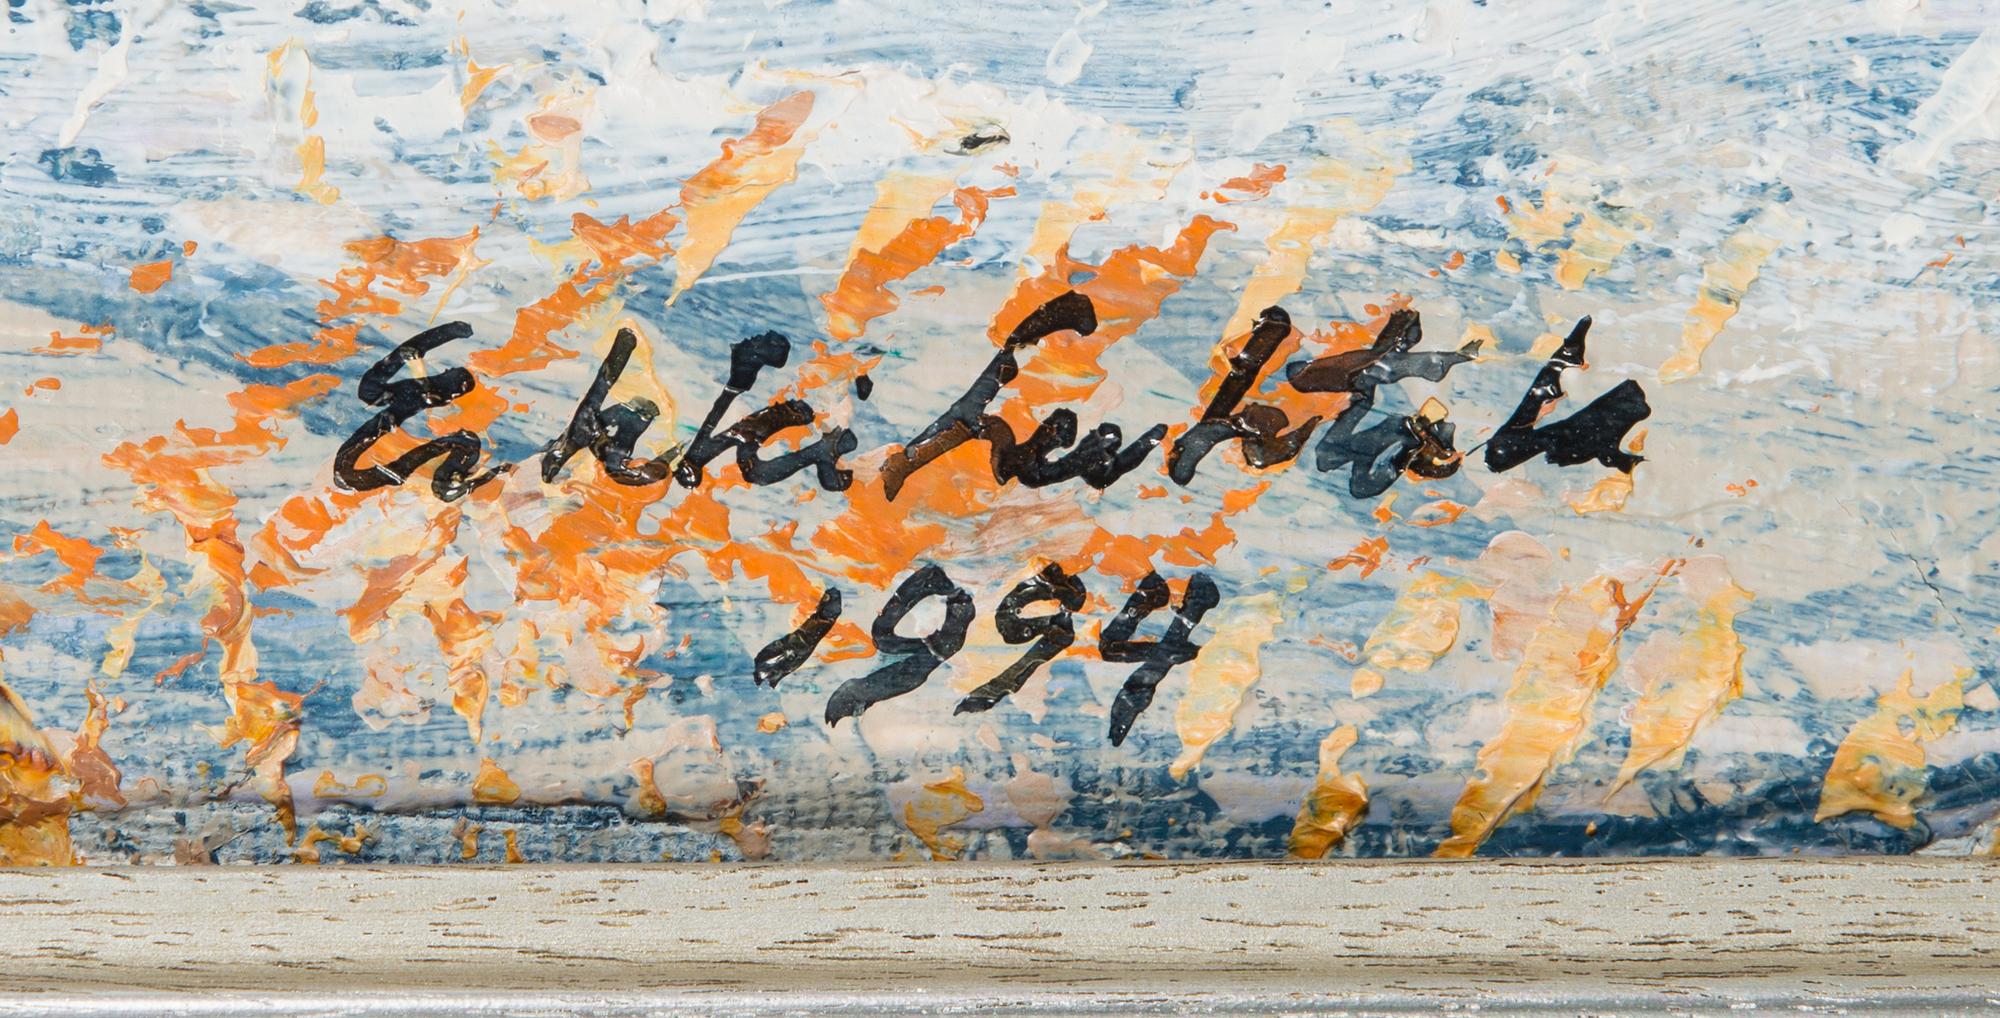 Erkki Luhtala
1994